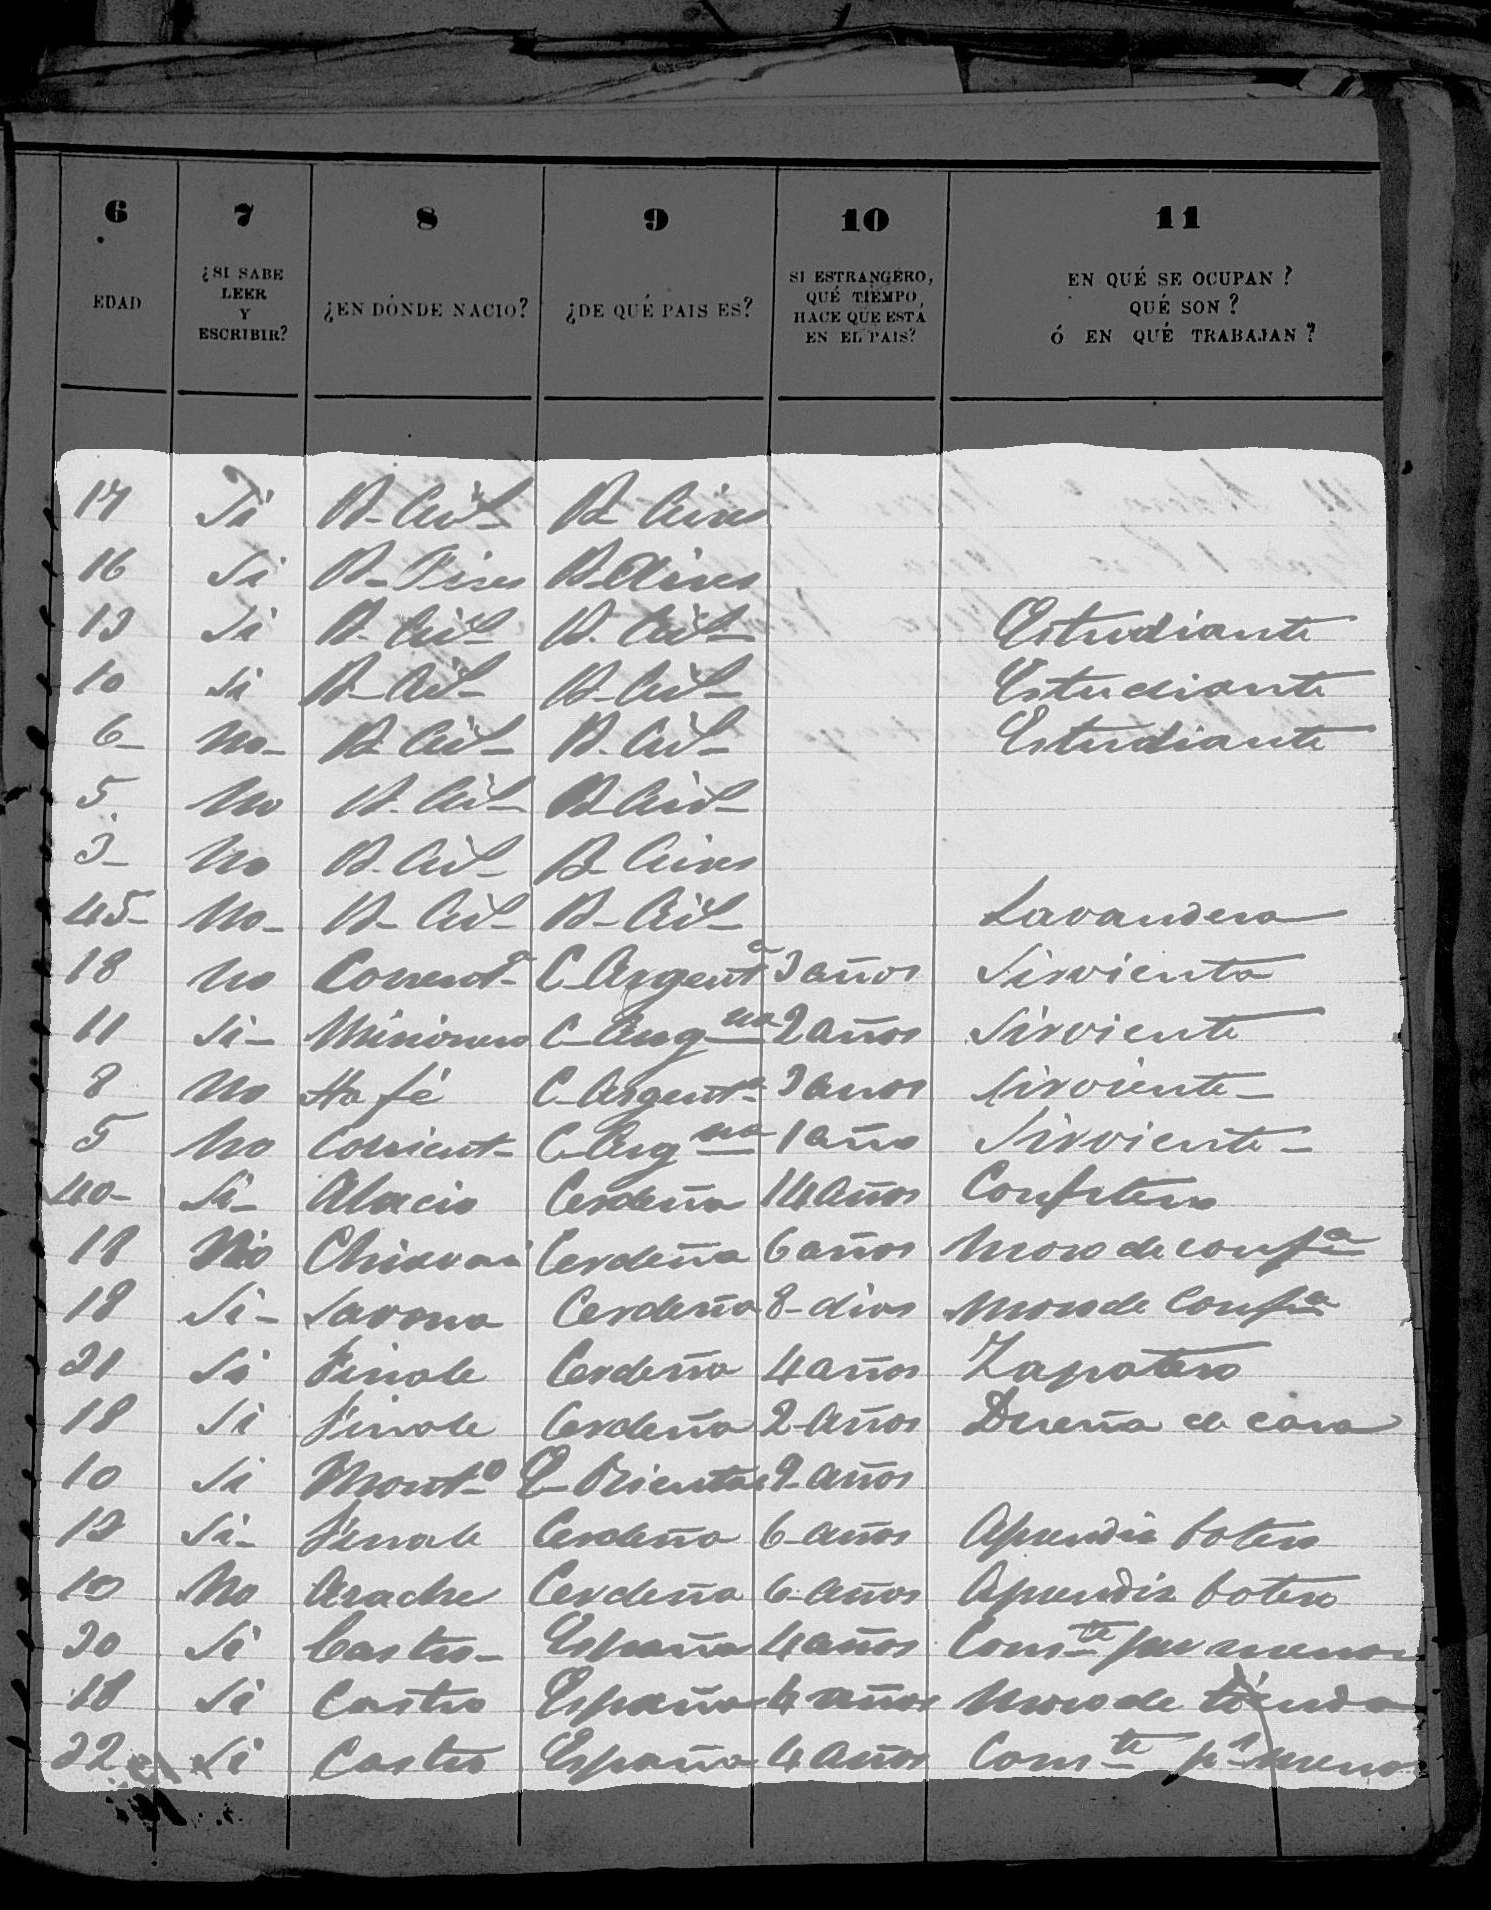 6 7 8 9 10 11
EDAD ¿SI SABE LEER Y ESCRIBIR? ¿EN DÓNDE NACIO? ¿DE QUÉ PAIS ES? SI ESTRANGERO, QUÉ TIEMPO HACE QUE ESTÁ EN EL PAIS? EN QUÉ SE OCUPAN? QUÉ SON? Ó EN QUÉ TRABAJAN?
17 Si B- Ais- B- Aires
16 Si B- Aires B- Aires
13 Si B- Ais- B- Ais- Estudiante
10 Si B- Ais- B- Ais- Estudiante
6- No- B- Ais- B- Ais- Estudiante
5 No B- Ais- B- Ais-
3- No B- Ais- B- Aires
45- No- B- Ais- B- Ais- Lavandera
18 No Corrent- C- Argentª 3 años Sirvienta
11 Si- Misiones C- Argna 2 años Sirviente
8 No Sta fé C- Argentª 3 años Sirviente-
5 No Corrient- C- Argna 1 año Sirviente-
40- Si- Alacio Cerdeña 14 años Confitero
18 No Chiavari Cerdeña 6 años Moso de confª
18 Si- Savona Cerdeña 8- dias Moso de Confª
21 Si Finale Cerdeña 4 años Zapatero
18 Si Finale Cerdeña 2 años Dueña de casa
10 Si Montº E- Oriental 2- años
12 Si- Finale Cerdeña 6- años Aprendis botero
10 No Cerdeña 6- años Aprendis botero
20 Si Castro- España 4 años Comte por menor
18 Si Castro España 4 años Moso de tienda
22 Si Castro España 4 años Comte pr menor